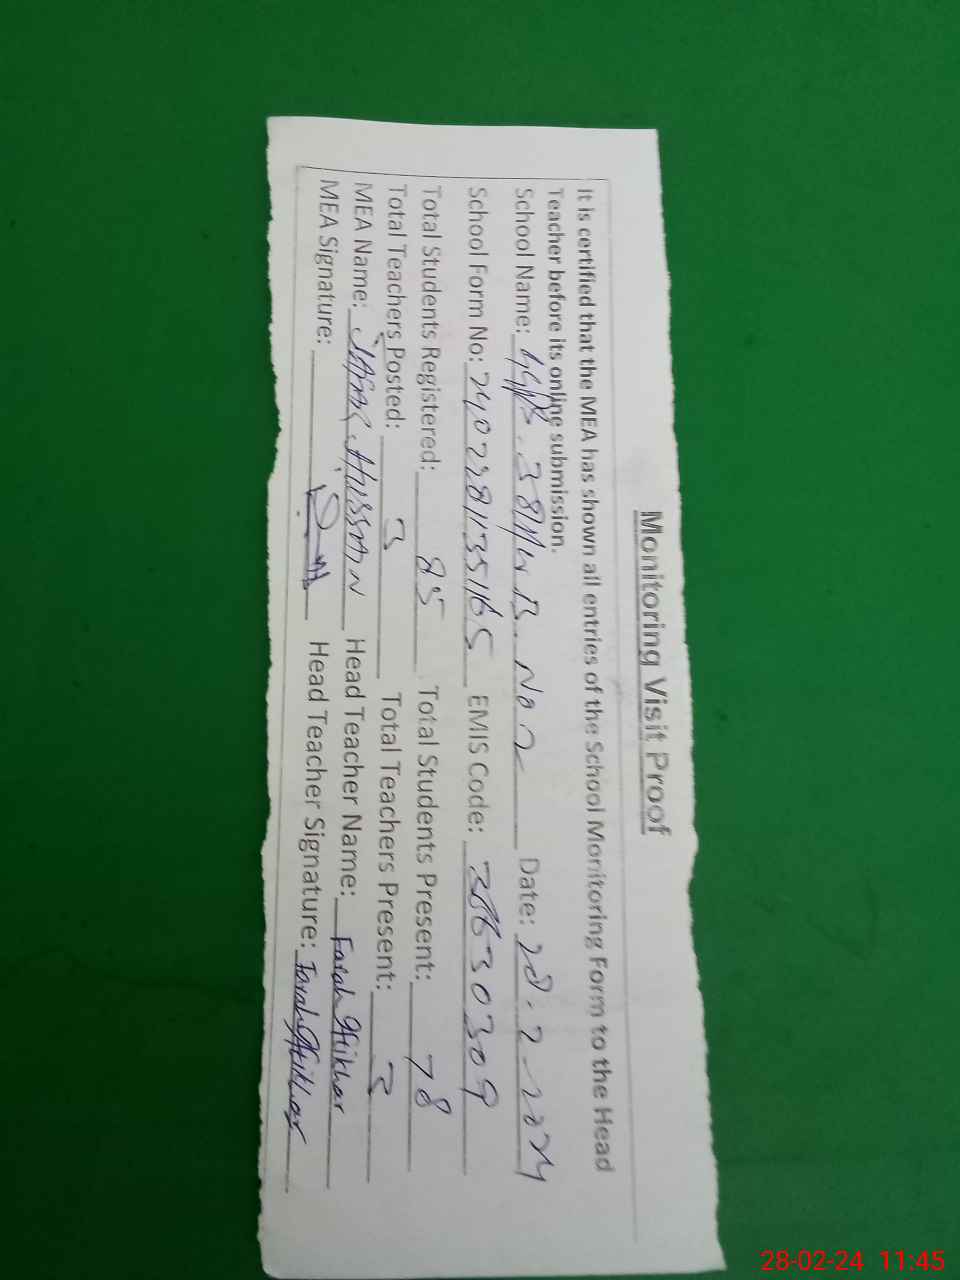 Monitoring Visit Proof
It is certified that the MEA has shown all entries of the School Monitoring Form to the Head
Teacher before its online submission.
School Name: GGPS. 38/14 B. No 2 Date: 28-2-2024
School Form No: EMIS Code:
Total Students Registered: 85 Total Students Present: 78
Total Teachers Posted: 3 Total Teachers Present: 3
MEA Name: Hussain Head Teacher Name: Farah Iftikhar
MEA Signature: Head Teacher Signature: Farah Iftikhar
28-02-24 11:45